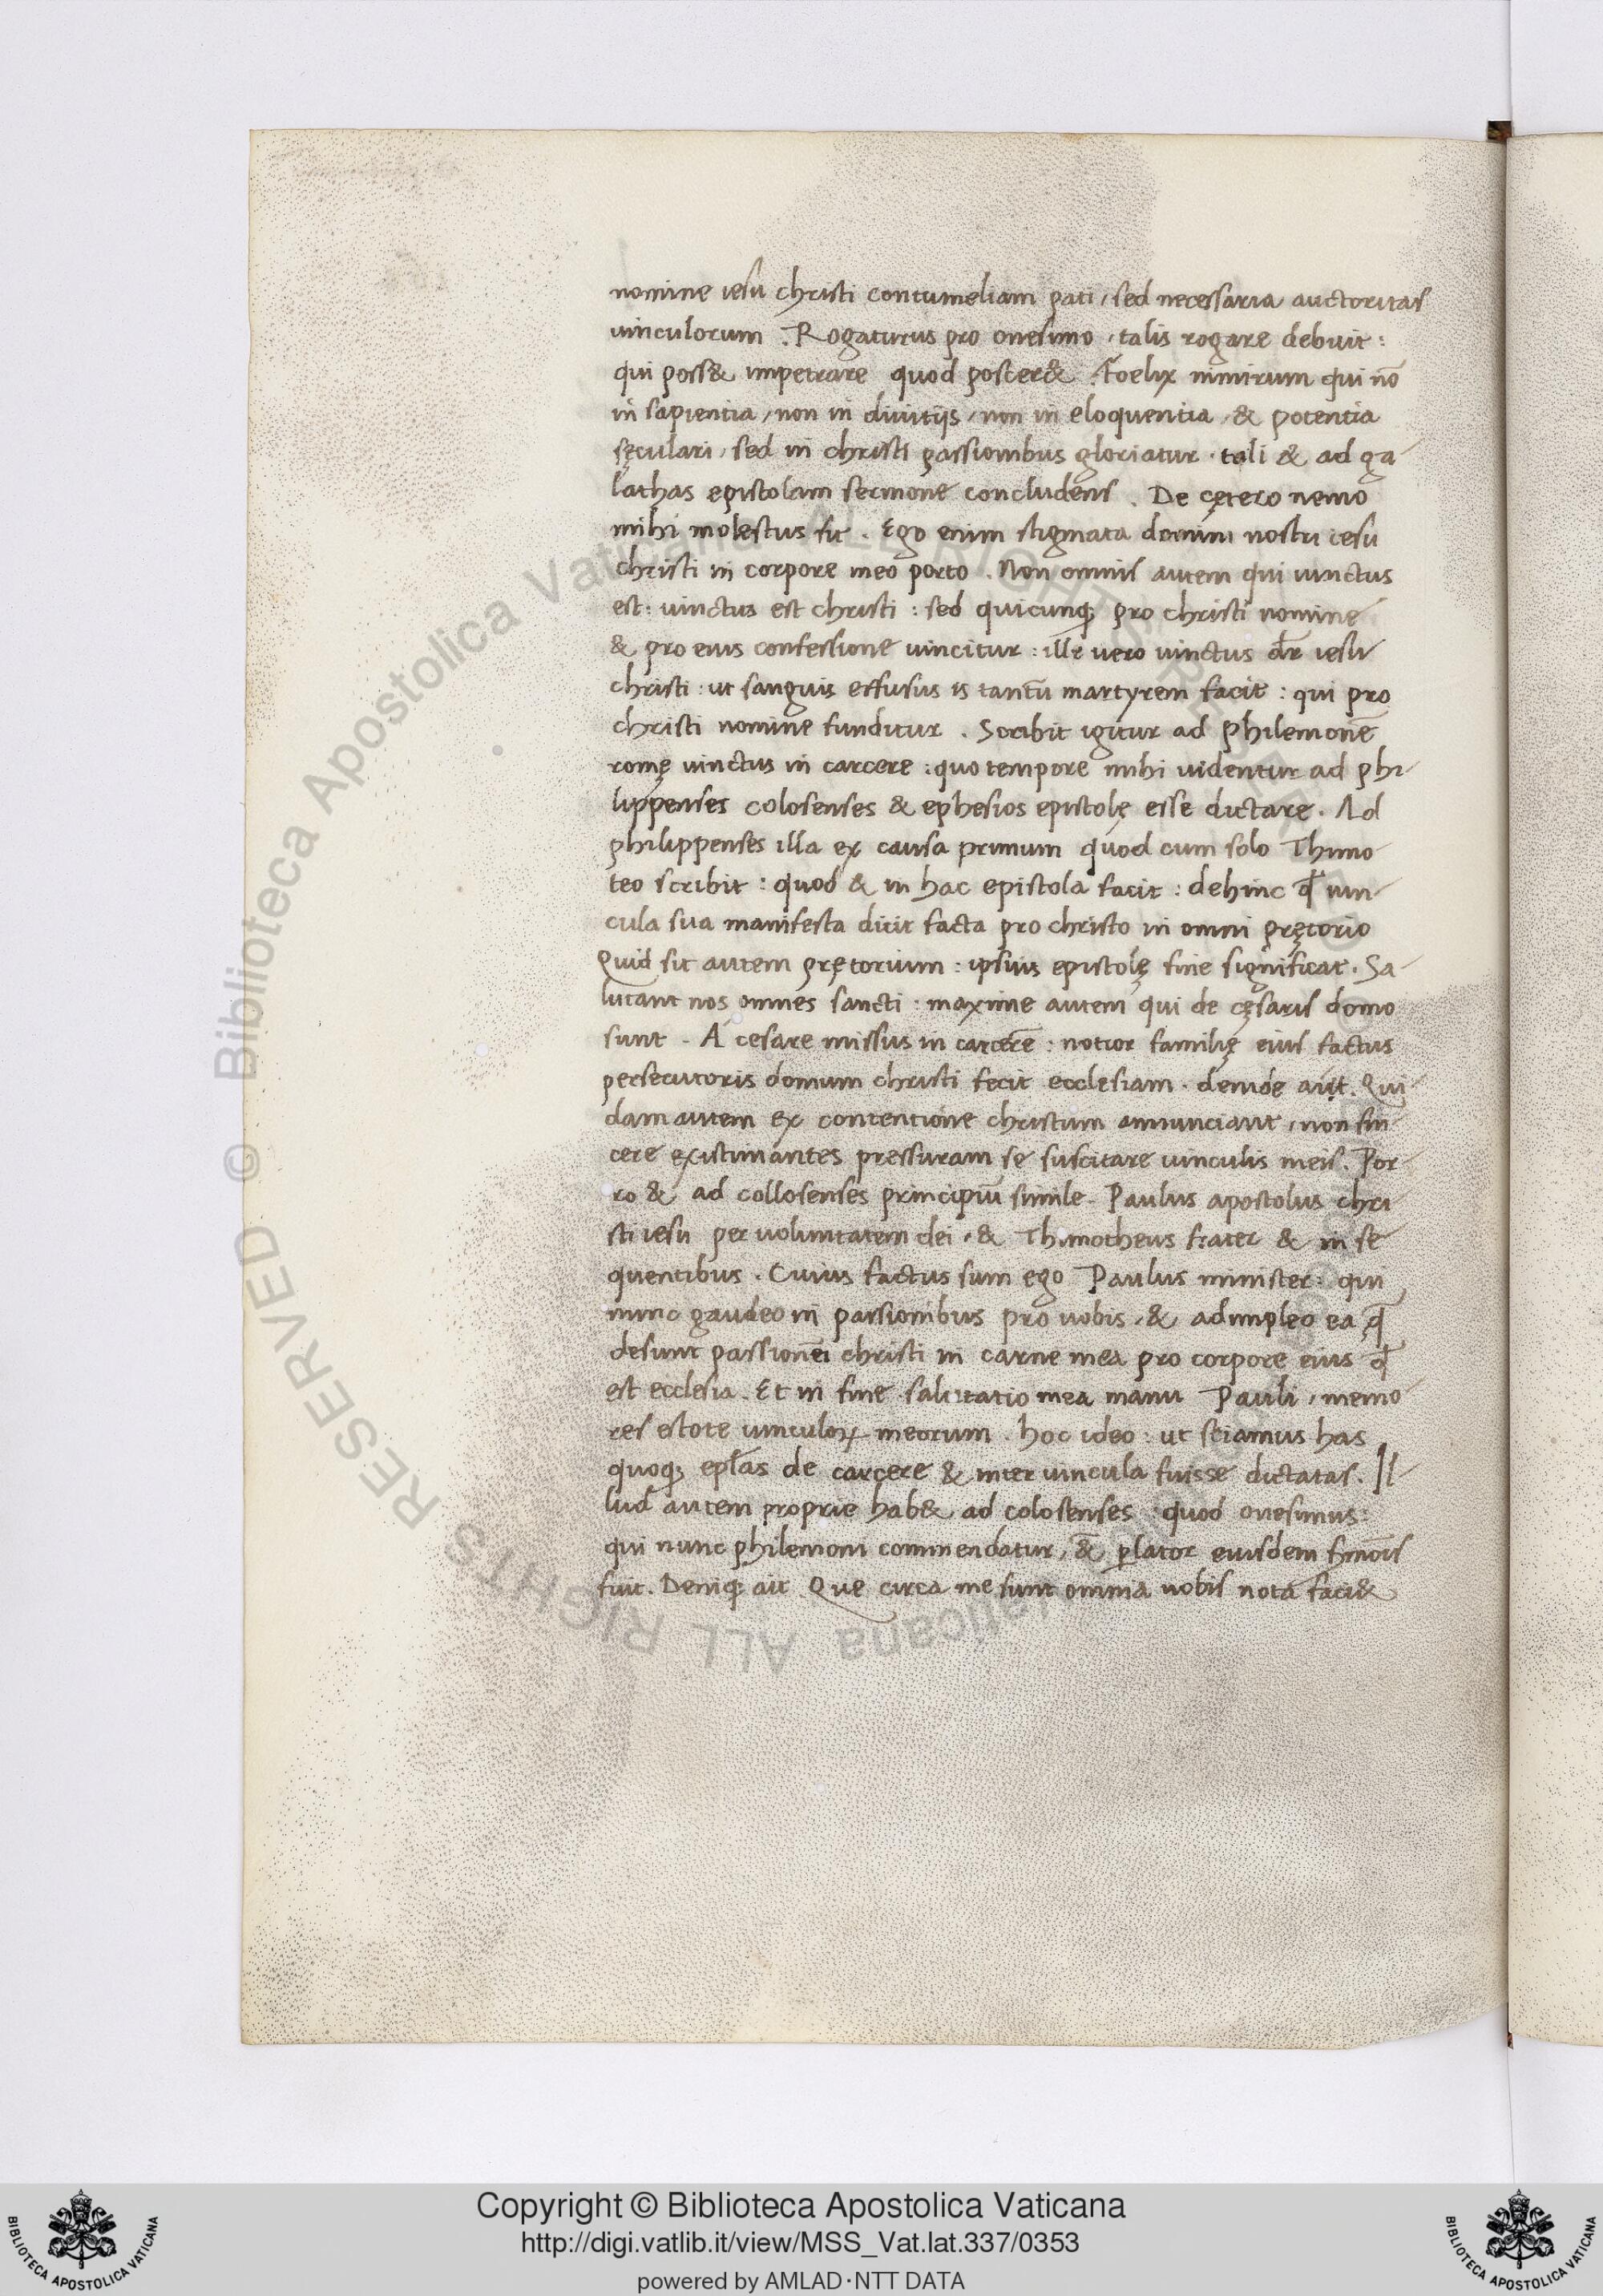 nomine iesu christi contumeliam pati, sed necessaria auctoritas
uinculorum. Rogaturus pro onesimo, talis rogare debuit:
qui poss& impetrare quod poscer&. Foelix nimirum qui nō
in sapientia, non in diuitijs, non in eloquentia, & potentia
sęculari, sed in christi passionibus gloriatur. tali & ad ga-
lathas epistolam sermone concludens. De cętero nemo
mihi molestus sit. Ego enim stigmata domini nostri iesu
christi in corpore meo porto. Non omnis autem qui uinctus
est: uinctus est christi: sed quicunq; pro christi nomine
& pro eius confessione uincitur: ille uero uinctus dr̄ iesu
christi: ut sanguis effusus is tantū martyrem facit: qui pro
christi nomine funditur. Scribit igitur ad Philemonē
romę uinctus in carcere: quo tempore mihi uidentur ad phi-
lippenses colosenses & ephesios epistolę esse dictare. Ad
philippenses illa ex causa primum quod cum solo Thimo
teo scribit: quod & in hac epistola facit: dehinc ꝙ uin-
cula sua manifesta dicit facta pro christo in omni pręcorio
Quid sit autem prętorium: ipsius epistolę fine significat. Sa-
lutant nos omnes sancti: maxime autem qui de cęsaris domo
sunt. A cesare missus in carcerē: notior familię eius factus
persecutoris domum christi fecit ecclesiam. deinde ait. Qui-
dam autem ex contentione christum annunciant, non sin-
cere existimantes pressuram se suscitare uinculis meis. Por-
ro & ad collosenses principiū simile. Paulus apostolus chri
sti iesu per uoluntatem dei, & Thimotheus frater & in se-
quentibus. Cuius factus sum ego Paulus minister: qui
nunc gaudeo in passionibus pro uobis, & adimpleo ea q̄
desunt passionē christi in carne mea pro corpore eius ꝙ
est ecclesia. Et in fine salutatio mea manu Pauli, memo-
res estote uinculoꝝ meorum. hoc ideo: ut sciamus has
quoq; epl̄as de carcere & inter uincula fuisse dictatas. Il-
lud autem proprie hab& ad colosenses quod onesimus:
qui nunc philemoni commendatur, & ꝑlator eiusdem
fuit. Deniq; ait Que circa me sunt omnia uobis nota faci&
Copyright © Biblioteca Apostolica Vaticana
http://digi.vatlib.it/view/MSS_Vat.lat.337/0353
powered by AMLAD·NTT DATA
BIBLIOTECA APOSTOLICA VATICANA
BIBLIOTECA APOSTOLICA VATICANA